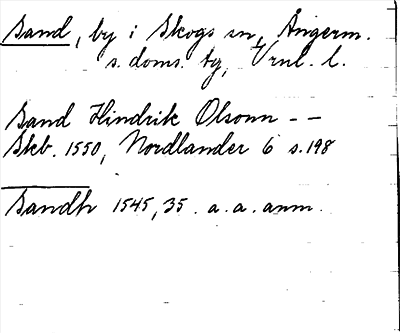 Sand, by i Skogs sn, Ångerm.
s. doms. tg, Vrnl. l.
Sand Hindrik Olsonn - -
Skb. 1550, Nordlander 6 s. 198
Sandh 1545, 35. a. a. anm.